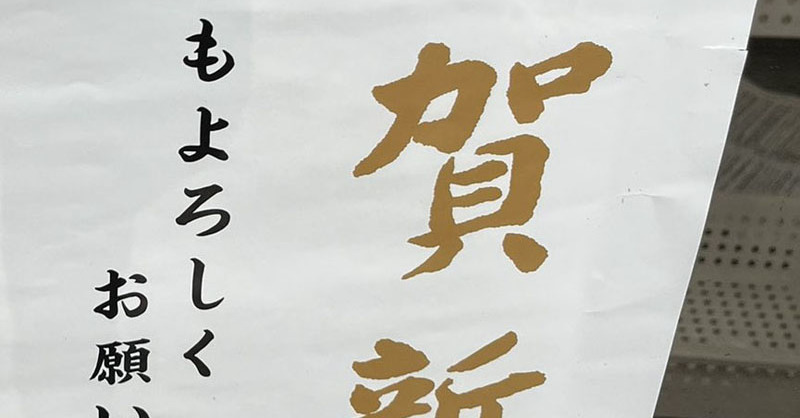 賀新
もよろしく
お願い